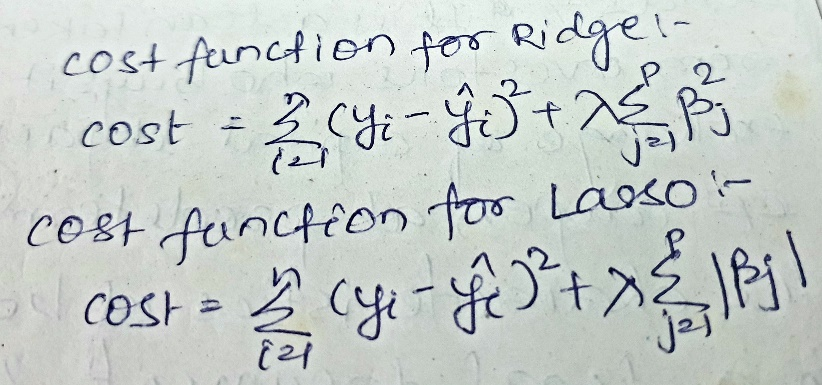 cost function for Ridge :-
cost = n∑i=1 (yi - ŷi)² + λ p∑j=1 βj²
cost function for Lasso :-
cost = n∑i=1 (yi - ŷi)² + λ p∑j=1 |βj|